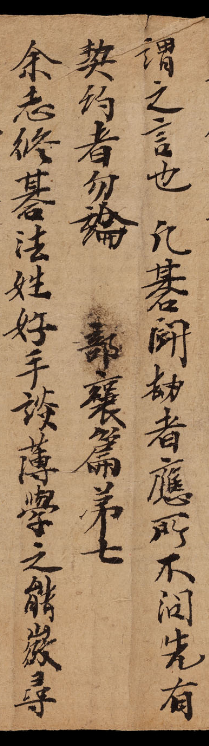 謂之言也 凡碁鬪劫者應所不問先有
契約者勿論 部襄篇第七
余志脩碁法姓好手談薄學之能微尋